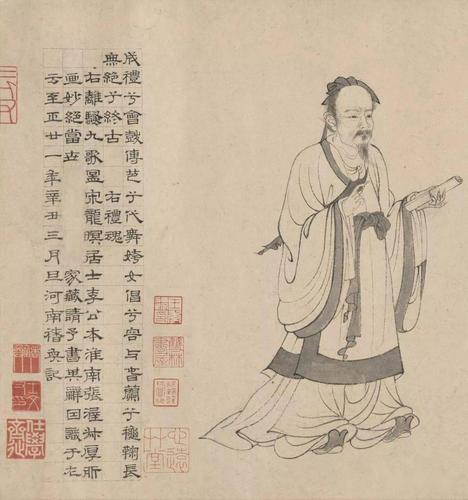 成禮兮會鼓傳芭兮代舞姱女倡兮容与春蘭兮龝鞠長
無絕兮終古 右禮魂
右離騷九歌圖宋龍暝居士李公本淮南張渥叔厚所
畫妙絕當世 家藏請予書其辭因識于左
云至正廿一年辛丑三月旦河南褚奐記